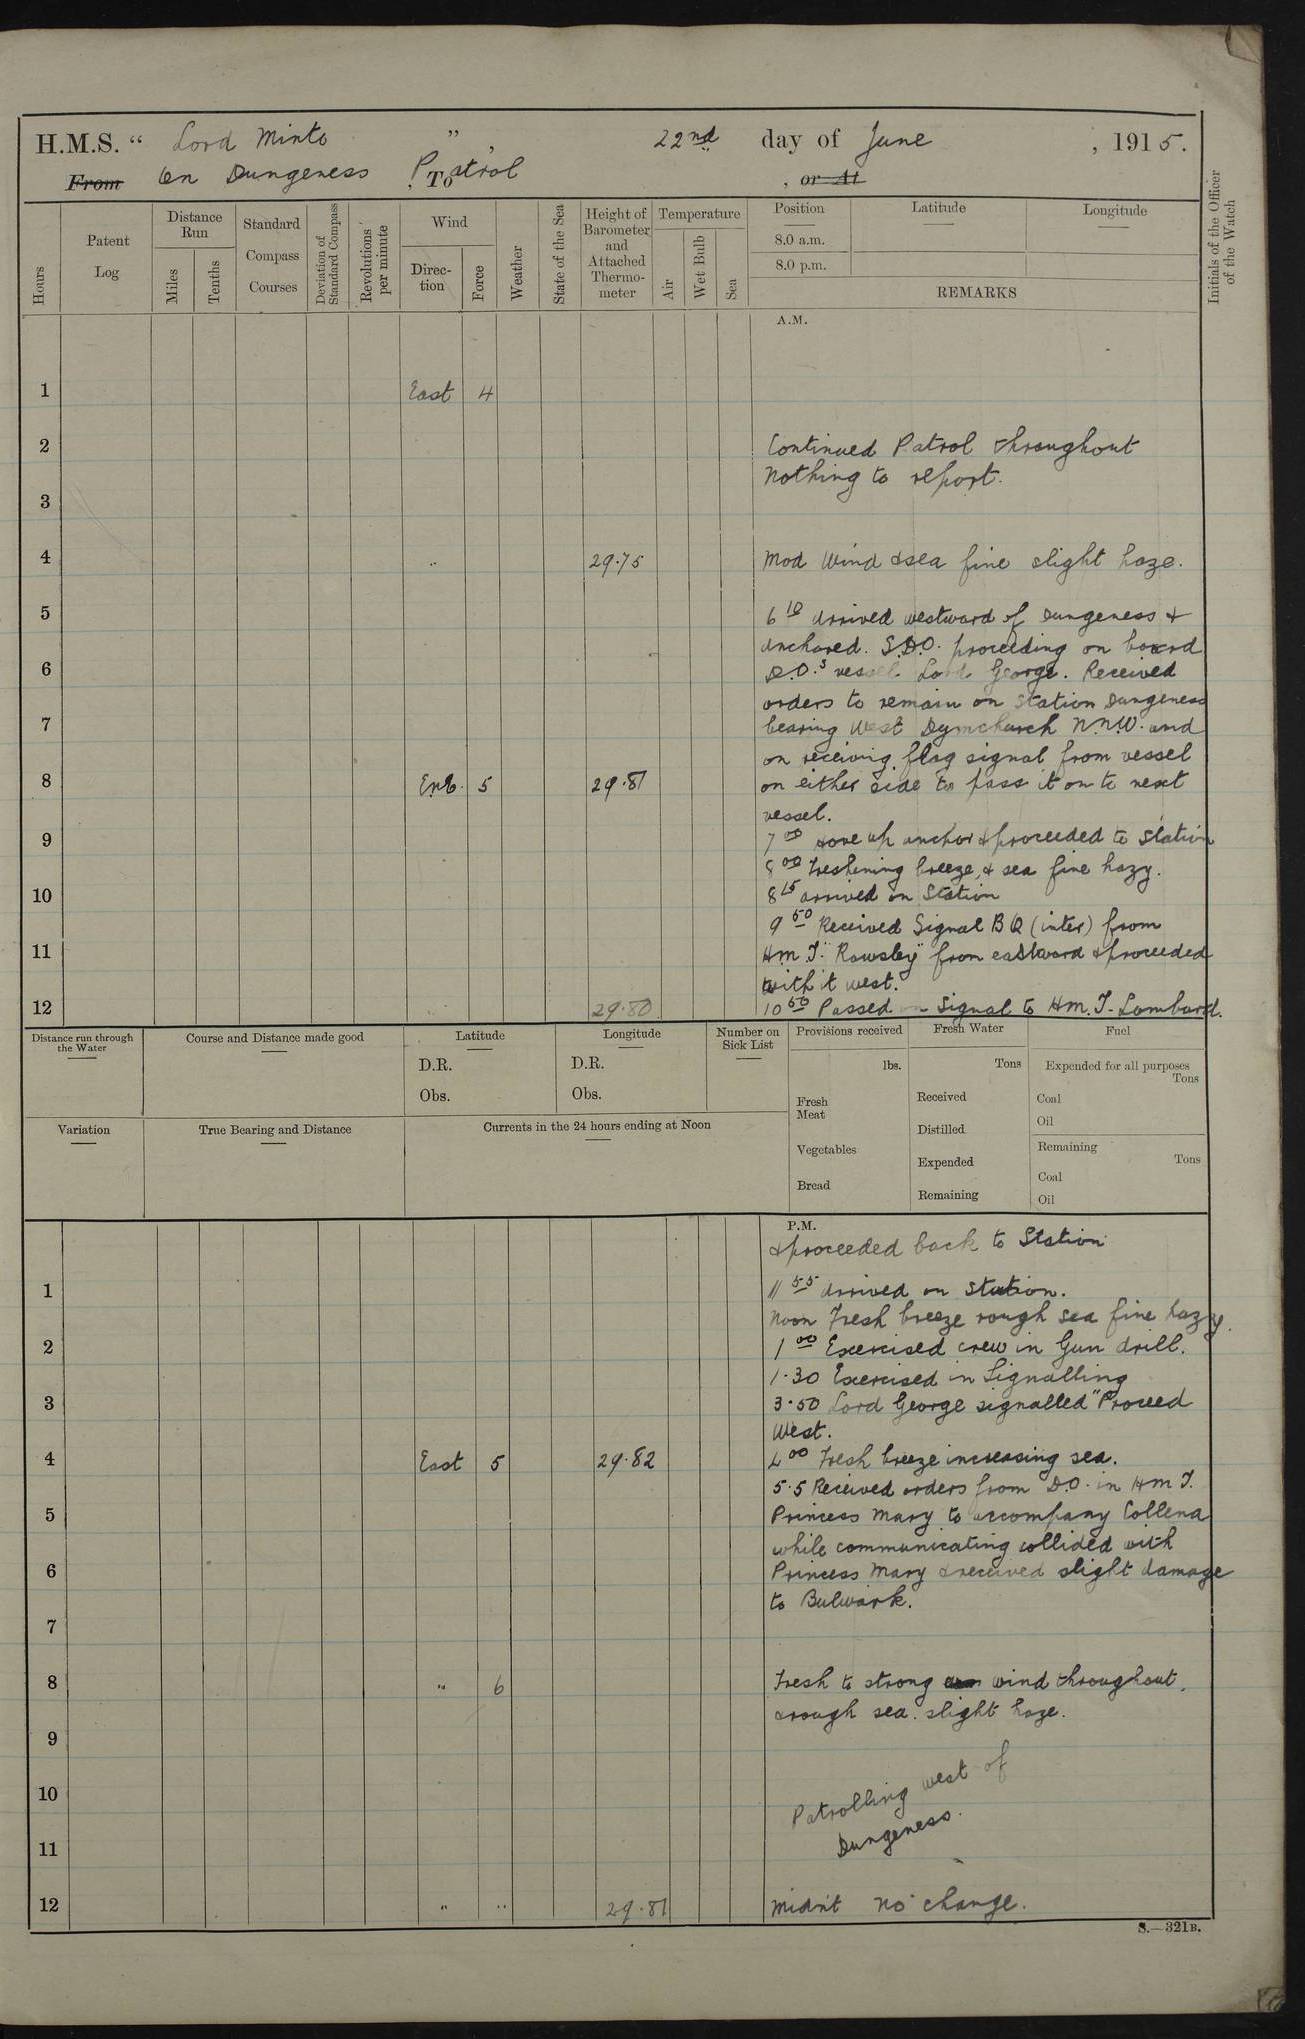 H.M.S. “ Lord Minto ” 22nd day of June , 1915.
From On Dungeness , To Patrol , or At
Hours
Patent Log
Distance Run
Miles
Tenths
Standard Compass Courses
Deviation of Standard Compass
Revolutions per minute
Wind
Direc-tion
Force
Weather
State of the Sea
Height of Barometer and Attached Thermo-meter
Temperature
Air
Wet Bulb
Sea
Position
Latitude
Longitude
8.0 a.m.
8.0 p.m.
REMARKS
Initials of the Officer of the Watch
A.M.
1 East 4
2 Continued Patrol throughout
Nothing to report.
3
4 " 29.75 Mod Wind & sea fine slight haze.
5 6 10 Arrived westward of Dungeness &
Anchored. S.D.O. proceeding on board
6 D.O.s vessel Lord George. Received
orders to remain on Station Dungeness
7 bearing West Dymchurch N.N.W. and
on receiving flag signal from vessel
8 EnE. 5 29.81 on either side to pass it on to next
vessel.
9 7 00 Hove up anchor & proceeded to Station
8 00 Freshening breeze, & sea fine hazy.
10 8 15 arrived on Station
9 50 Received Signal BQ (inter) from
11 H.M.T. "Rowsley" from eastward & proceeded
with it west.
12 29.80 10 50 Passed Signal to H.M.T. Lombard.
Distance run through the Water
Course and Distance made good
Latitude
D.R.
Obs.
Longitude
D.R.
Obs.
Number on Sick List
Provisions received
lbs.
Fresh Meat
Vegetables
Bread
Fresh Water
Tons
Received
Distilled
Expended
Remaining
Fuel
Expended for all purposes
Tons
Coal
Oil
Remaining
Tons
Coal
Oil
Variation
True Bearing and Distance
Currents in the 24 hours ending at Noon
P.M.
& proceeded back to Station
1 11 55 Arrived on Station.
Noon Fresh breeze rough sea fine hazy.
2 1 00 Exercised crew in Gun drill.
1.30 Exercised in Signalling
3 3.50 Lord George signalled "Proceed
West.
4 East 5 29.82 4 00 Fresh breeze increasing sea.
5.5 Received orders from D.O. in H.M.T.
5 Princess Mary to accompany Collena
while communicating collided with
6 Princess Mary & received slight damage
to Bulwark.
7
8 " 6 Fresh to strong wind throughout.
& rough sea. slight haze.
9
10 Patrolling west of
11 Dungeness.
12 " " 29.81 Midn't No change.
S.—321B.